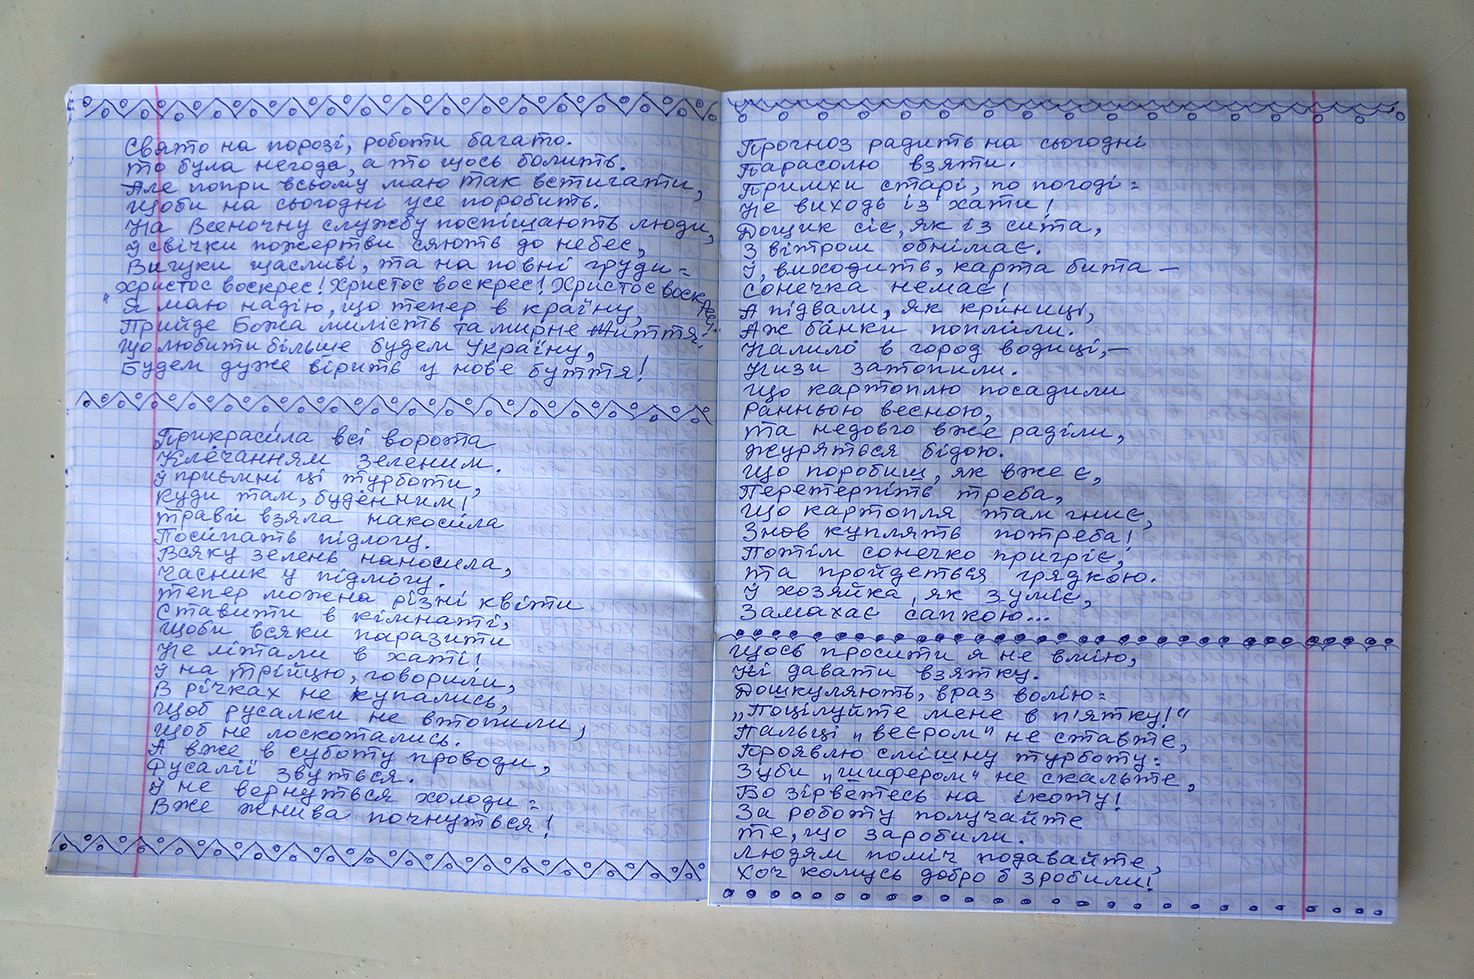 Свято на порозі, роботи багато.
То була негода, а то щось болить.
Але попри всьому маю так встигати,
Щоби на сьогодні усе поробить.
На Всеночну службу поспішають люди,
У свічки пожертви сяють до небес,
Вигуки щасливі, та на повні груди:
Христос воскрес! Христос воскрес! Христос воскрес!
"Я маю надію, що тепер в країну,
Прийде Божа милість та мирне життя.
Що любити більше будем Україну,
Будем дуже вірить у нове буття!
Прикрасила всі ворота
Клечанням зеленим.
У приємні ці турботи,
Куди там, буденним!
Трави взяла накосила
Посипать підлогу.
Всяку зелень наносила,
Часник у підмогу.
Тепер можна різні квіти
Ставити в кімнаті,
Щоби всяки паразити
Не літали в хаті!
У на Трійцю, говорили,
В річках не купались,
Щоб русалки не втопили,
Щоб не лоскотались.
А вже в суботу проводи,
Русалії звуться.
У не вернуться холоди:
Вже жнива почнуться!
Прогноз радить на сьогодні
Парасолю взяти.
Примхи старі, по погоді:
Не виходь із хати!
Дощик сіє, як із сита,
З вітром обнімає.
У, виходить, карта бита –
Сонечка немає!
А підвали, як криниці,
Аж банки поплили.
Налило в город водиці, –
Низи затопили.
Що картоплю посадили
Ранньою весною,
Та недовго вже раділи,
Журяться бідою.
Що поробиш, як вже є,
Перетерпіть треба,
Що картопля там гниє,
Знов куплять потреба!
Потім сонечко пригріє,
Та пройдеться грядкою.
У хозяйка, як зуміє,
Замахає сапкою...
Щось просити я не вмію,
Ні давати взятку.
Дошкуляють, враз волію:
„Поцілуйте мене в п'ятку!"
Пальці „веєром" не ставте,
Проявлю смішну турботу:
Зуби „шифером" не скальте,
Бо зірветесь на ікоту!
За роботу получайте
Те, що заробили.
Людям поміч подавайте,
Хоч колись добро б зробили!